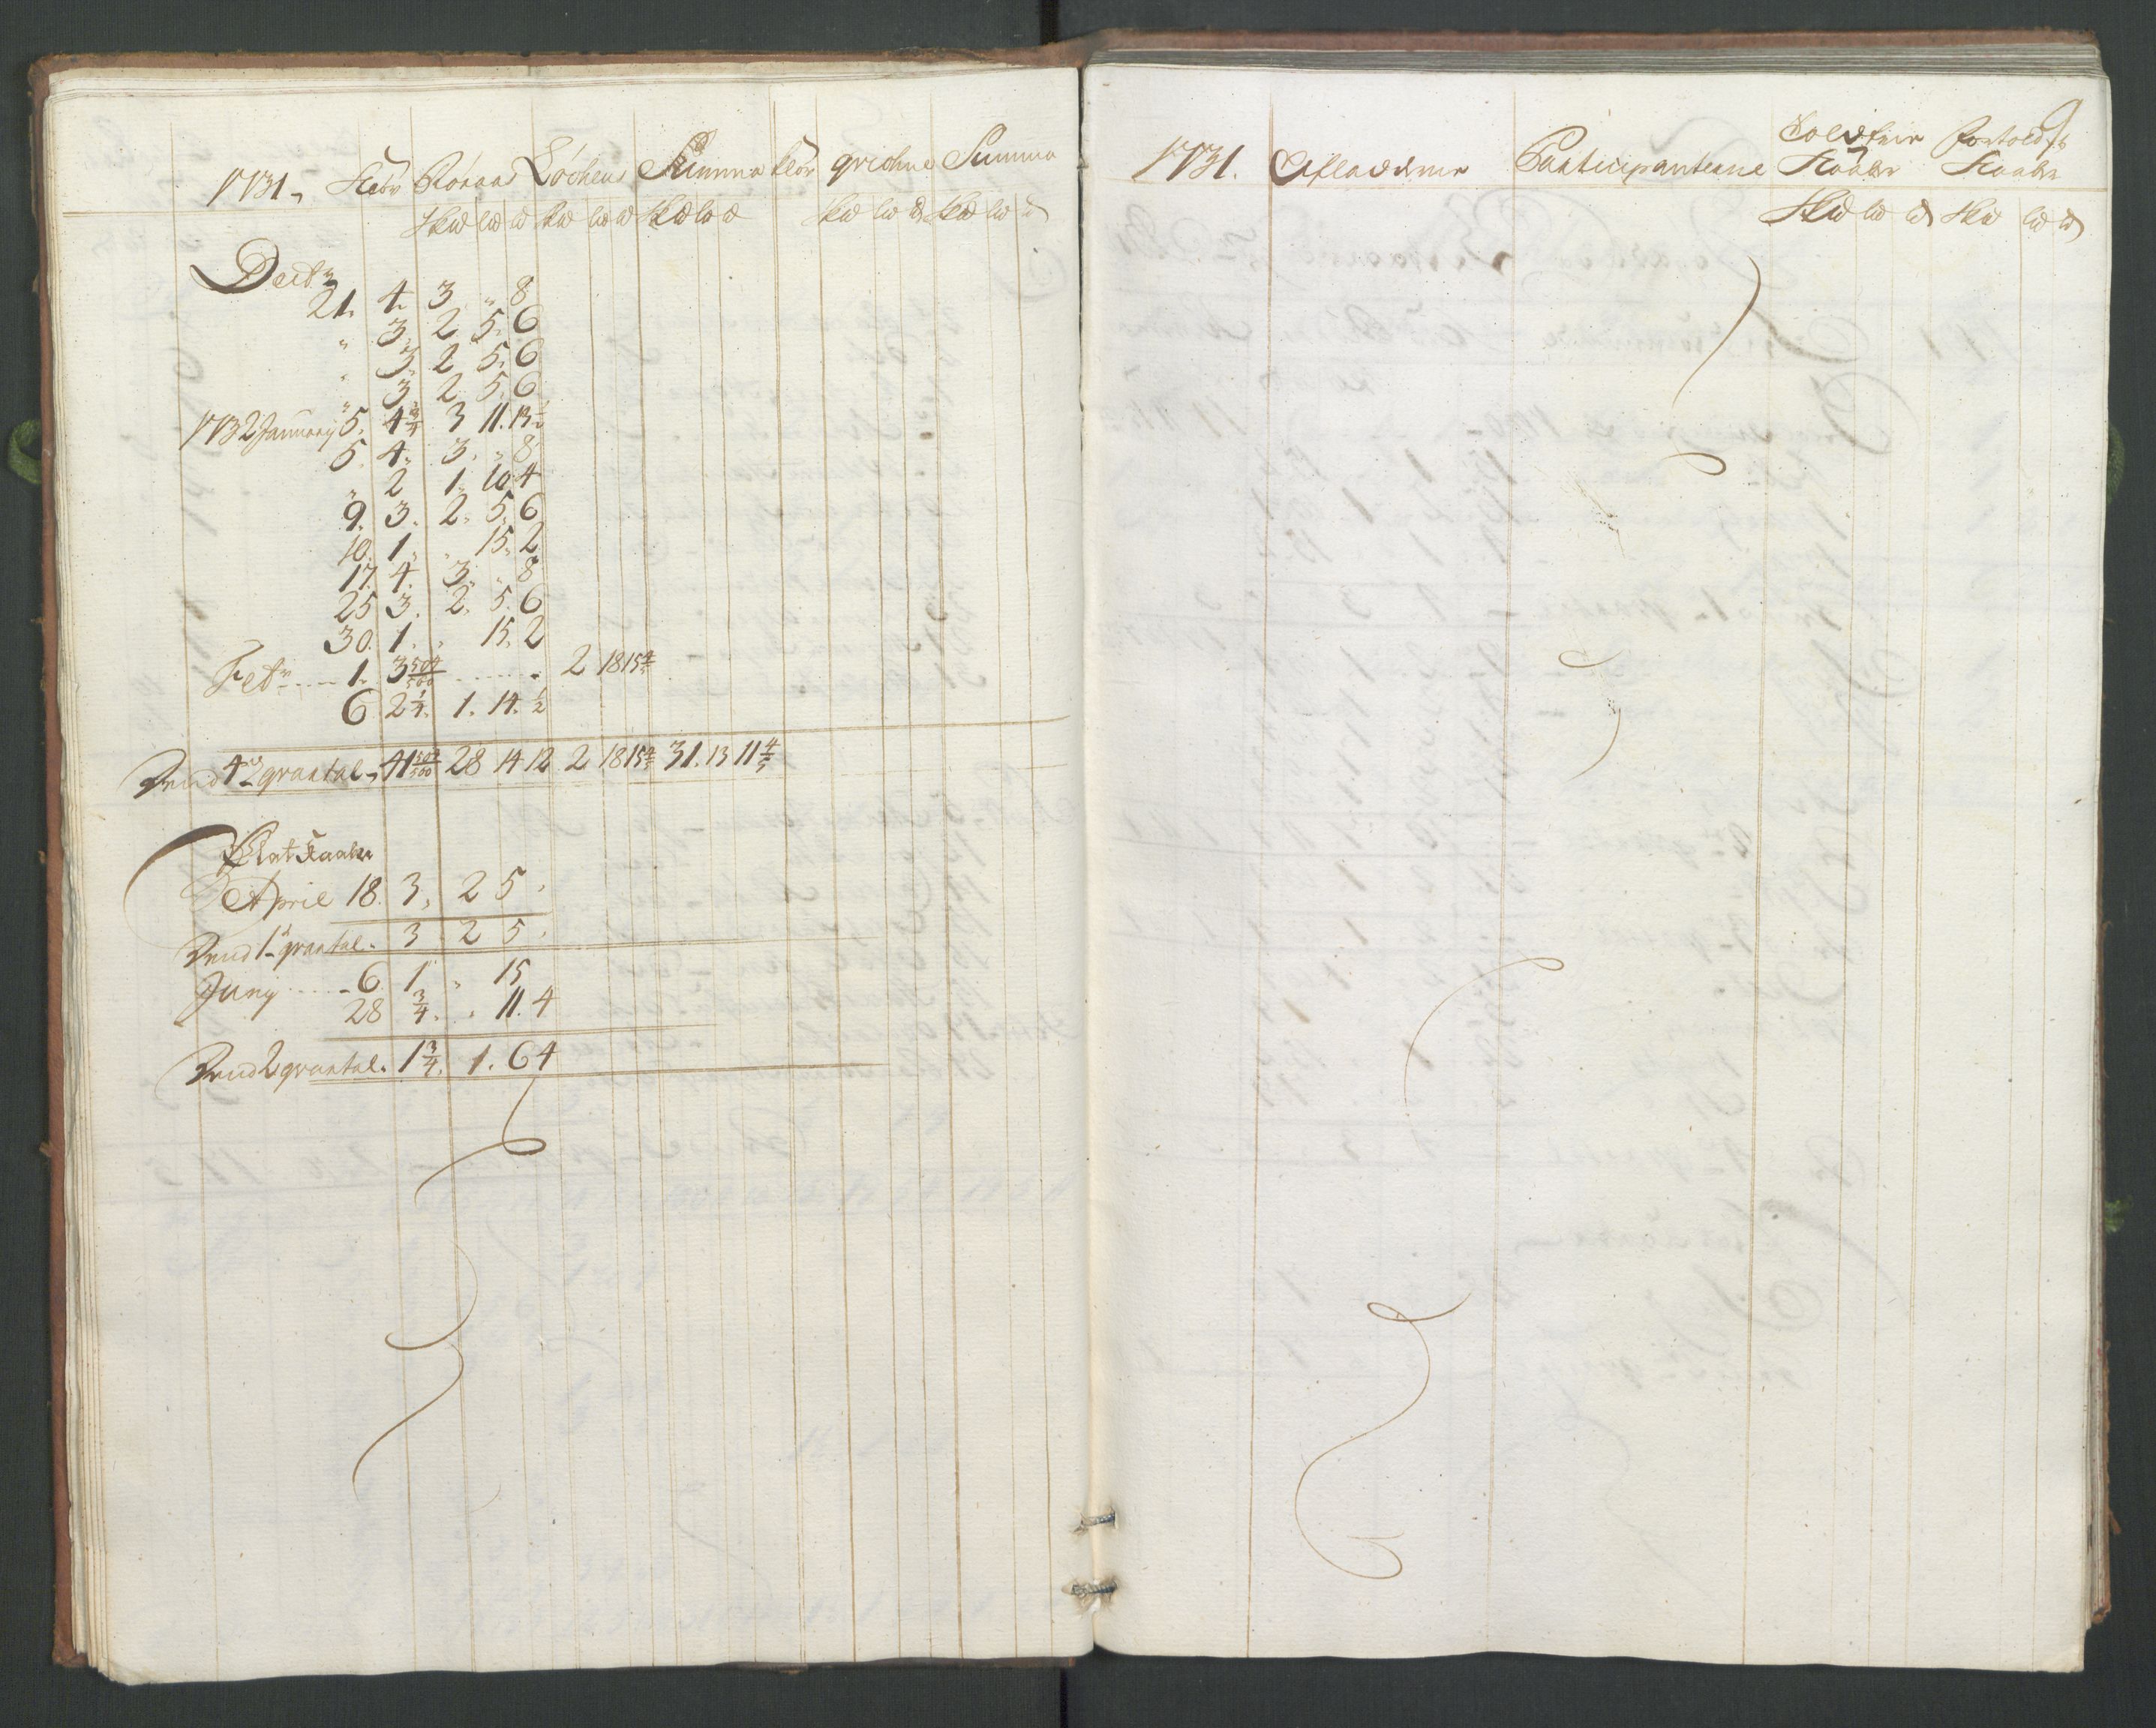 1731, Støv Røraas Løchens Summa Støv qvichne Summa
Skd ld d Skd ld d Skd ld d Skd ld d Skd ld d
Decbr
21. 4. 3 „ 8
„ 3. 2 5. 6
„ 3. 2 5. 6
„ 3 2 5. 6
1732 January 5. 4 3/4 3 11. 13 1/2
5. 4. 3. „ 8
„ 2 1. 10 4
9. 3. 2. 5. 6
10. 1. „ 15. 2
17. 4. 3. „ 8
25 3. 2. 5. 6
30. 1. „ 15. 2
Febr 1. 3 504/560 2 18 15 4/5
6 2 1/4. 1. 14. 1/2
4de qvartal 41 504/560 28 14 12 2 18 15 4/5 31. 13 11 4/5
Plat Kaaber
April 18. 3. 2 5.
1te qvartal. 3. 2 5.
Juny 6 1 „ 15
28 3/4. „ 11. 4
2 qvartal. 1 3/4. 1. 6 4
9
1731. Afladderne Participanterne Toldfrie Kaaber Fortoldet Kaaber
Skd ld d Skd ld d